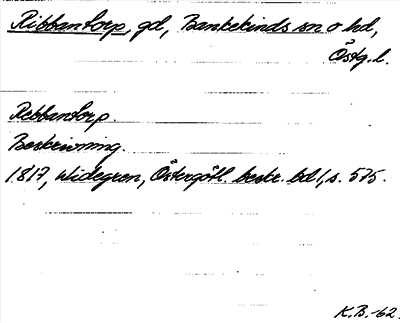 Ribbantorp, gd, Bankekinds sn o hd,
Östg. l.
Rebbantorp.
Beskrivning.
1817, Widegren, Östergötl. beskr. bd 1, s. 575.
K.B.-62.